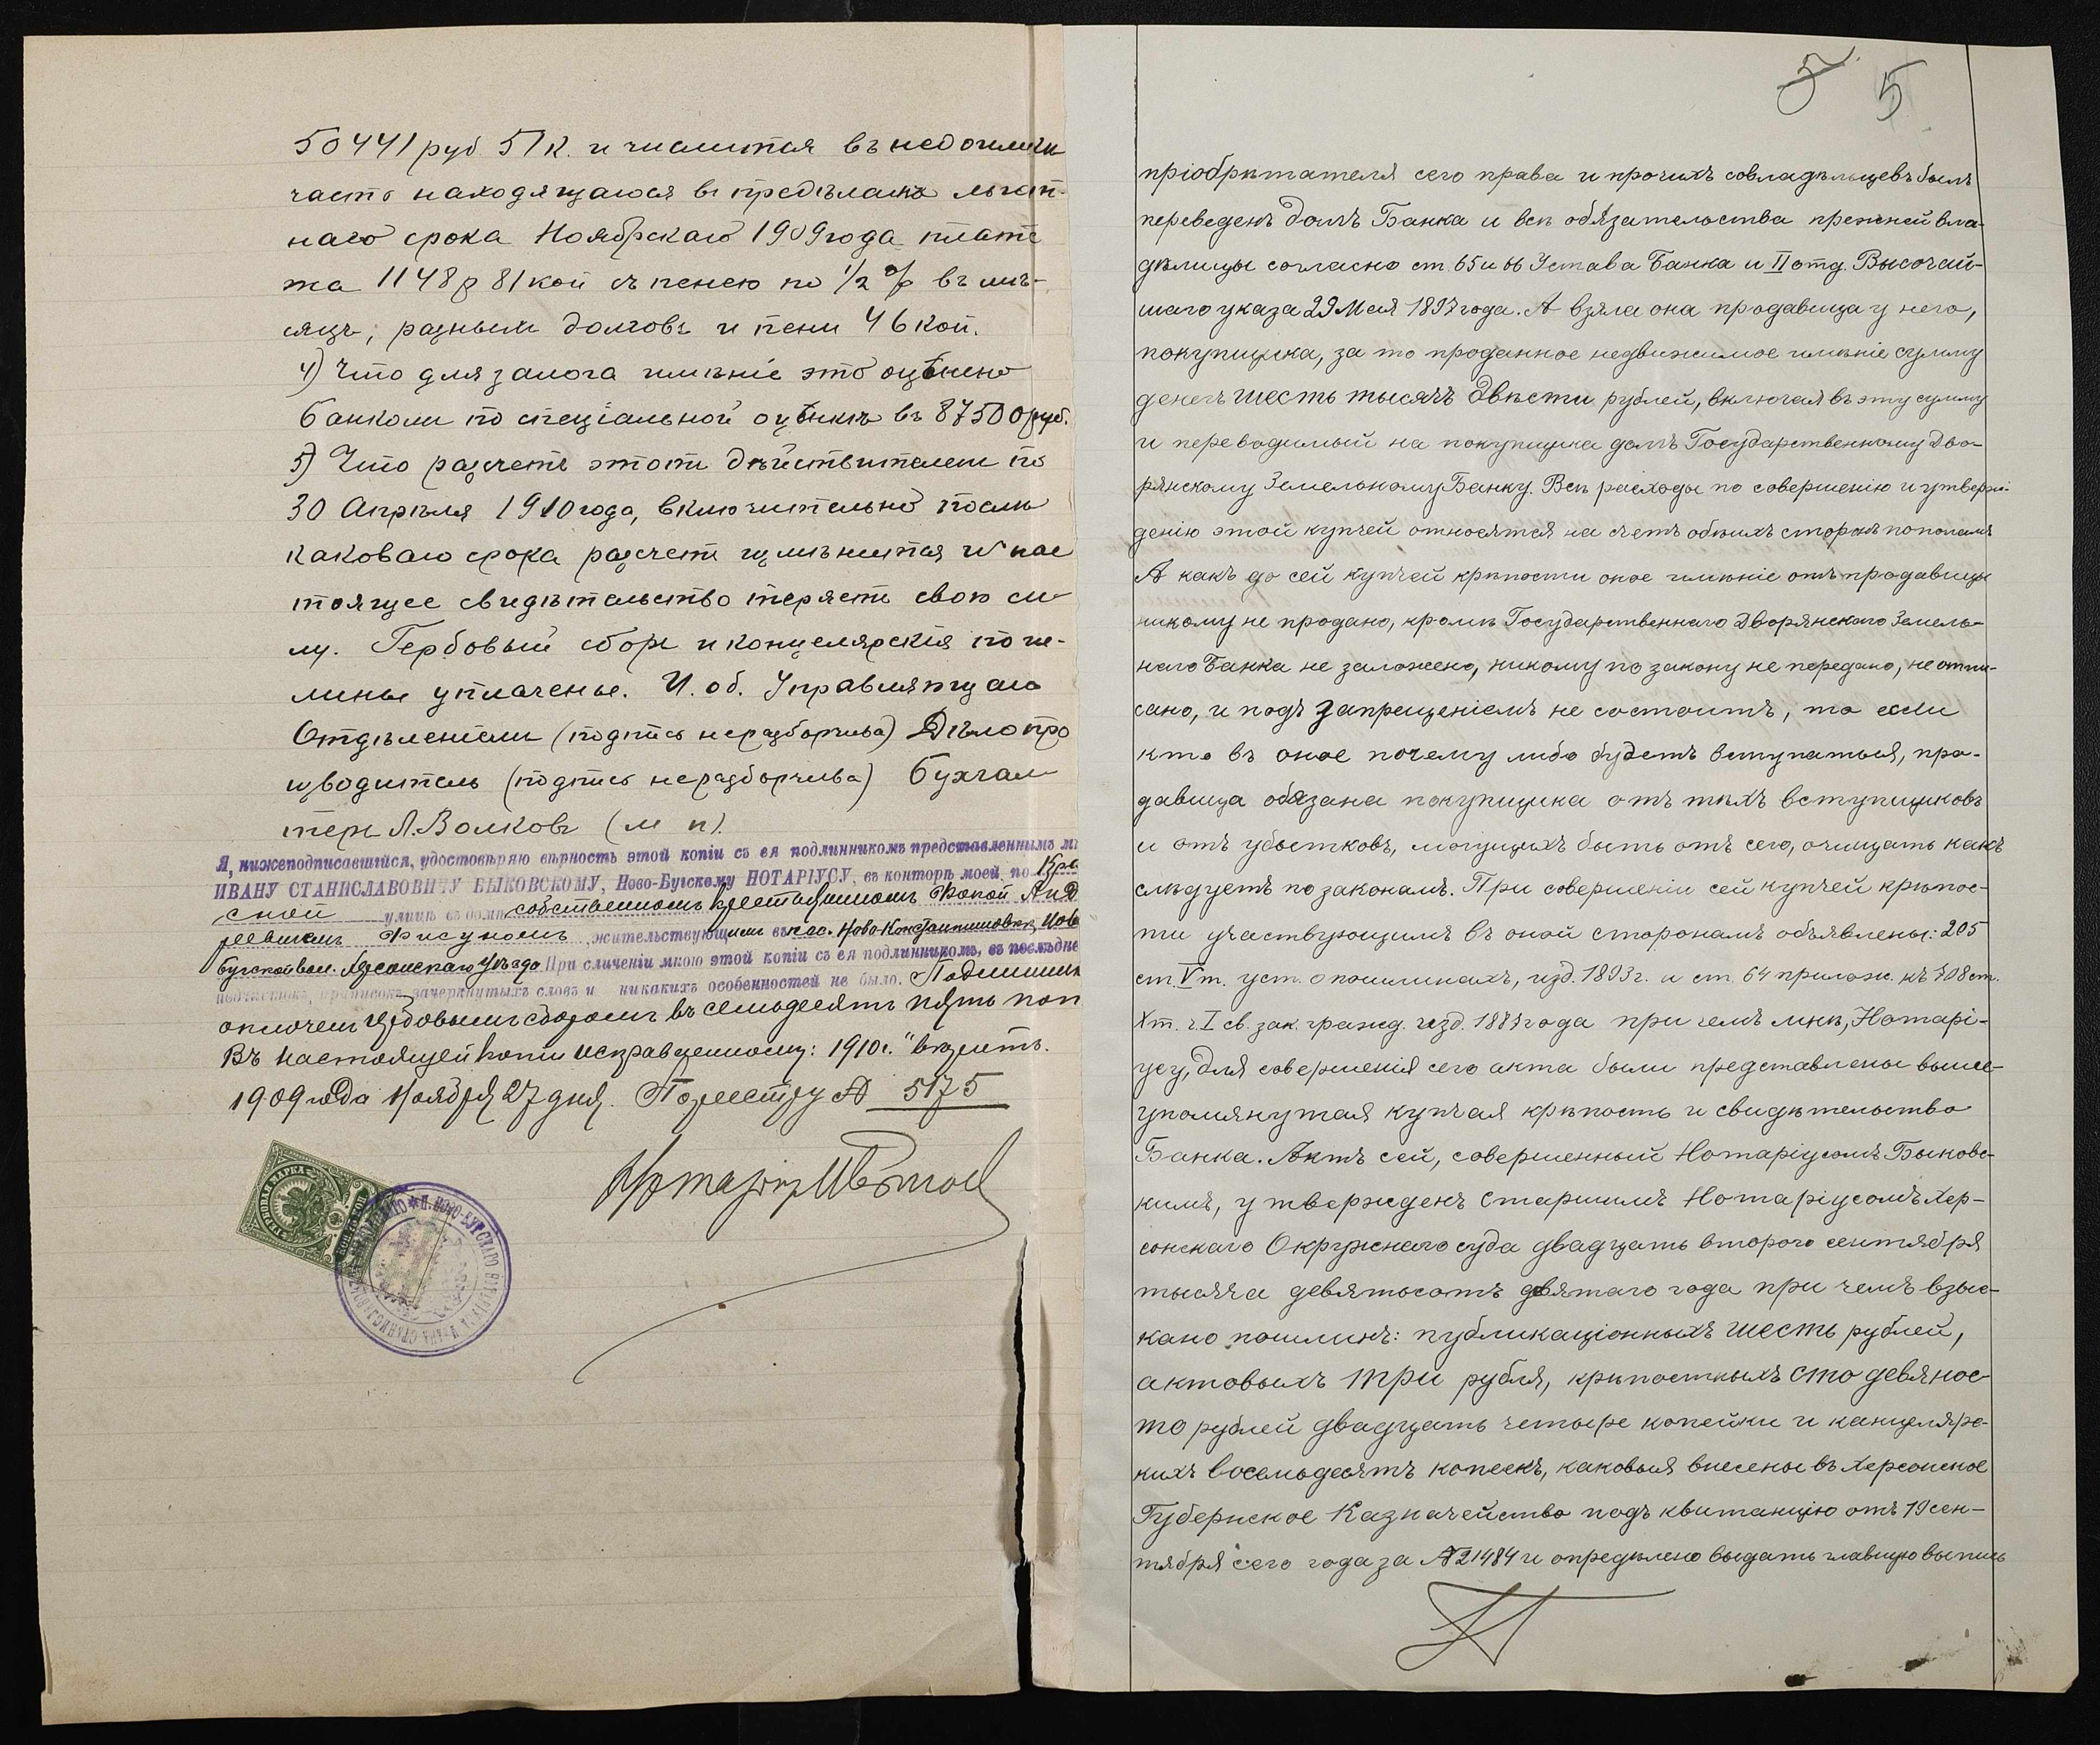 50441 руб. 51 к. и числится въ недоимки
часть находящаяся въ предѣлахъ льгот-
наго срока Ноябрскаго 1909 года плате
жа 1148 р 81 коп съ пенею по ½ % въ мѣ-
сяцъ, разныхъ долговъ и пени 46 коп.
4) Что для залога имѣніе это оцѣнено
банкомъ по спеціальной оцѣнкѣ въ 87500 руб.
5) Что разсчетъ этотъ дѣйствителенъ по
30 Апрѣля 1910 года, включительно послѣ
каковаго срока разсчетъ измѣнится и нас
тоящее свидѣтельство теряетъ свою си-
лу. Гербовый сборъ и канцелярскія пош-
лины уплачены. И. об. Управляющаго
Отдѣленіемъ (подпись неразборчива) Дѣлопро
изводитель (подпись неразборчива) Бухгал
теръ Л. Волковъ (м п).
Я, нижеподписавшійся, удостовѣряю вѣрность этой копіи съ ея подлинникомъ представленнымъ мн
ИВАНУ СТАНИСЛАВОВИЧУ БЫКОВСКОМУ, Ново-Бугскому НОТАРІУСУ, въ конторѣ моей, по
ской улицѣ въ домѣ собственномъ крестьяниномъ Фокой Анд
реевичемъ Фисуномъ, жительствующимъ въ пос. Ново-Константиновкѣ, Ново
бугской вол. Херсонскаго уѣзда При сличеніи мною этой копіи съ ея подлинникомъ, въ послѣдне
подчистокъ, приписокъ, зачеркнутыхъ словъ и никакихъ особенностей не было. Подлинникъ
оплоченъ гербовымъ сборомъ въ семьдесятъ пять коп
Въ настоящей копіи исправленному: 1910 г. "вѣрить.
1909 года Ноября 27 дня. По реестру № 5175
Нотаріусъ
3 5
пріобрѣтателя сего права и прочихъ совладѣльцевъ былъ
переведенъ долгъ Банка и всѣ обязательства прежней вла-
дѣлицы согласно ст. 65 и 66 Устава Банка и II отд. Высочай-
шаго указа 29 Мая 1897 года. А взяла она продавица у него,
покупщика, за то проданное недвижимое имѣніе сумму
денегъ шесть тысячъ двѣсти рублей, включая въ эту сумму
и переводимый на покупщика долгъ Государственному Дво-
рянскому Земельному Банку. Всѣ расходы по совершенію и утверж-
денію этой купчей относятся на счетъ обѣихъ сторонъ пополамъ
А какъ до сей купчей крѣпости оное имѣніе отъ продавицы
никому не продано, кромѣ Государственнаго Дворянскаго Земель-
наго Банка не заложено, никому по закону не передано, не отпи-
сано, и подъ запрещеніемъ не состоитъ, то если
кто въ оное почему либо будетъ вступаться, про-
давица обязана покупщика отъ тѣхъ вступщиковъ
и отъ убытковъ, могущихъ быть отъ сего, очищать какъ
слѣдуетъ по законамъ. При совершеніи сей купчей крѣпос-
ти участвующимъ въ оной сторонамъ объявлены: 205
ст. V т. уст. о пошлинахъ, изд. 1893 г. и ст. 64 прилож. къ 708 ст.
X т. ч. I св. зак. гражд. изд. 1887 года при чемъ мнѣ, Нотарі-
усу, для совершенія сего акта были представлены выше-
упомянутая купчая крѣпость и свидѣтельство
Банка. Актъ сей, совершенный Нотаріусомъ Быковс-
кимъ, утвержденъ Старшимъ Нотаріусомъ Хер-
сонскаго Окружнаго суда двадцать второго сентября
тысяча девятьсотъ девятаго года при чемъ взыс-
кано пошлинъ: публикаціонныхъ шесть рублей,
актовыхъ три рубля, крѣпостныхъ сто девянос-
то рублей двадцать четыре копейки и канцелярс-
кихъ восемьдесятъ копеекъ, каковыя внесены въ Херсонское
Губернское Казначейство подъ квитанцію отъ 19 сен-
тября сего года за № 21484 и опредѣлено выдать главную выпись